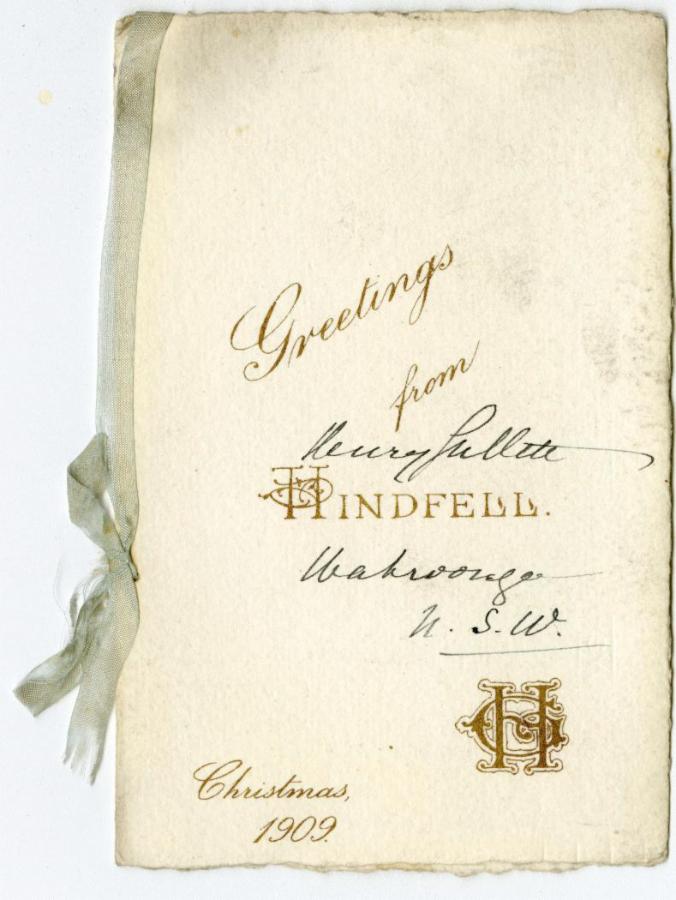 Greetings
from
Henry Gullett
HINDFELL.
Wahroonga
N. S. W.
HG
Christmas,
1909.